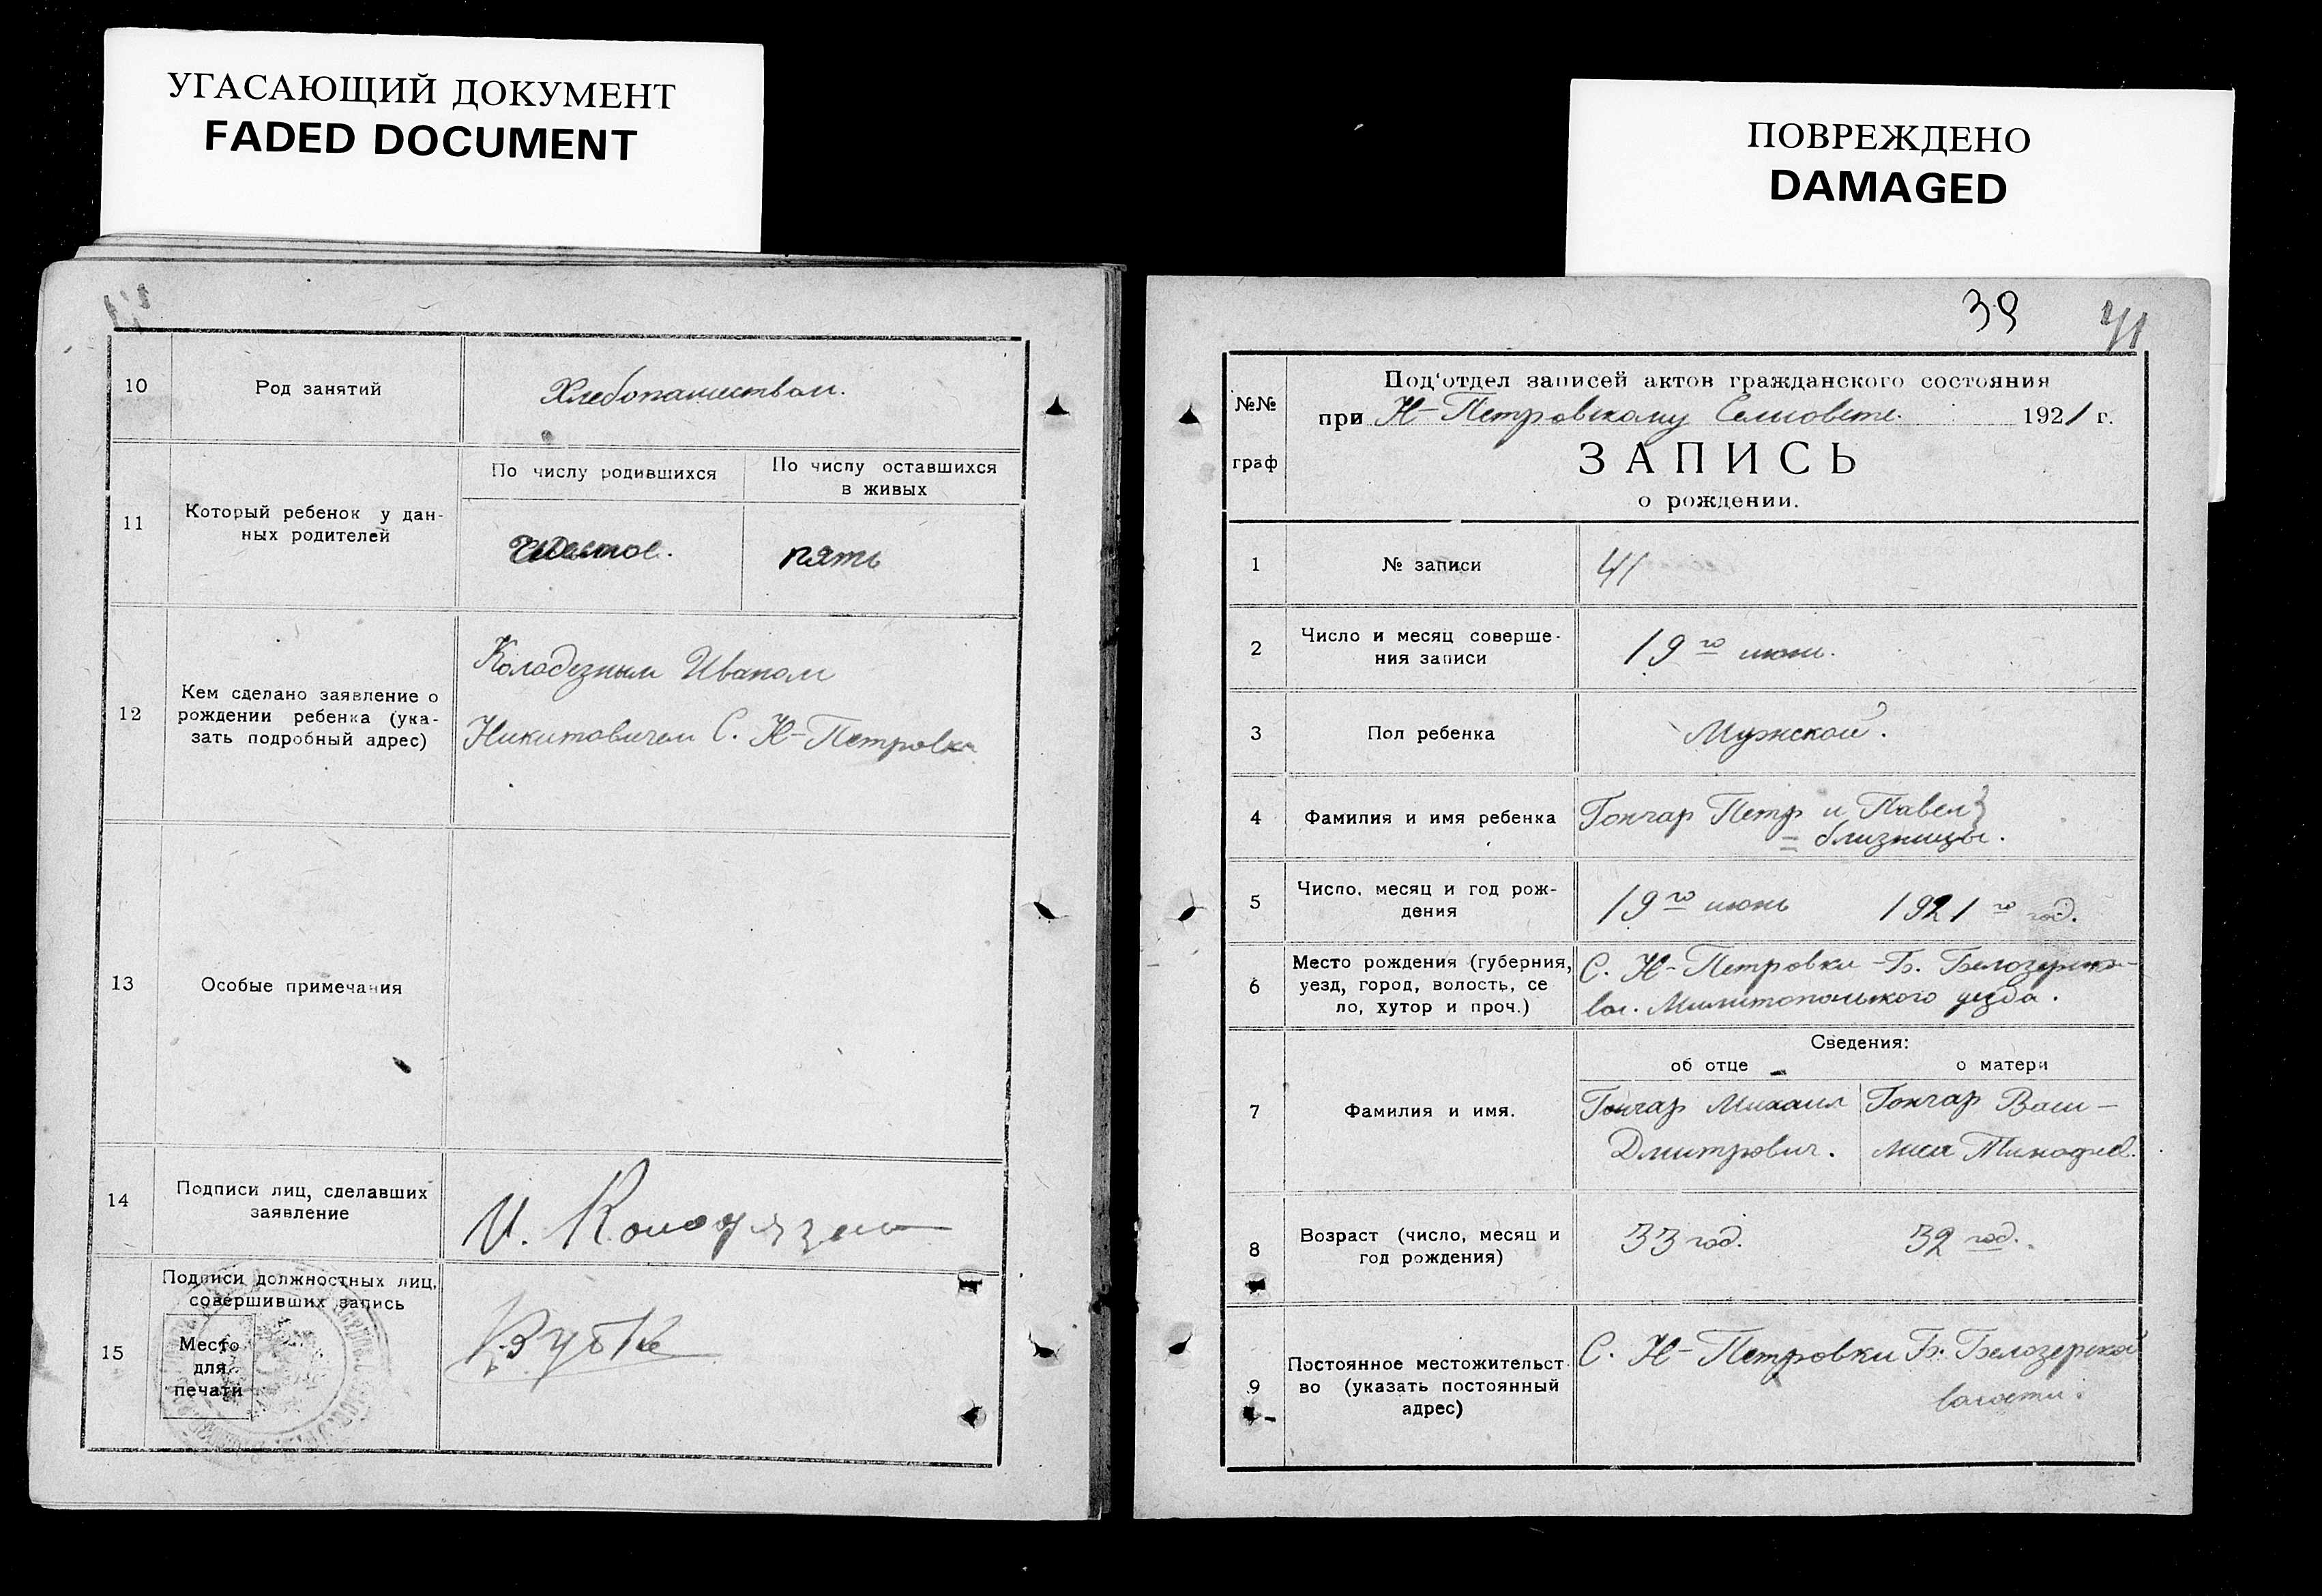 УГАСАЮЩИЙ ДОКУМЕНТ
FADED DOCUMENT
10
Род занятий
Хлебопашеством.
11
Который ребенок у дан-
ных родителей
По числу родившихся
По числу оставшихся
в живых
пять
12
Кем сделано заявление о
рождении ребенка (ука-
зать подробный адрес)
Колодезным Иваном
Никитовичем С. Н-Петровка
13
Особые примечания
14
Подписи лиц, сделавших
заявление
И. Колодязны
15
Подписи должностных лиц,
совершивших запись
Место
для
печати
ПОВРЕЖДЕНО
DAMAGED
39
41
№№
граф
Под'отдел записей актов гражданского состояния
при Н-Петровскому Сельсовете. 1921 г.
ЗАПИСЬ
о рождении.
1
№ записи
41
2
Число и месяц соверше-
ния записи
19го июнь.
3
Пол ребенка
Мужской.
4
Фамилия и имя ребенка
Гончар Петр и Павел}
= близницы.
5
Число, месяц и год рож-
дения
19го июнь 1921го год.
6
Место рождения (губерния,
уезд, город, волость, се
ло, хутор и проч.)
С. Н-Петровки -Б. Белозерско-
вол. Милитопольского уезда.
Сведения:
об отце
о матери
7
Фамилия и имя.
Гончар Михаил
Дмитрович.
Гончар Васи-
лиса
8
Возраст (число, месяц и
год рождения)
33 год.
32 год.
9
Постоянное местожительст
во (указать постоянный
адрес)
С. Н-Петровки Б. Белозерской
волости.